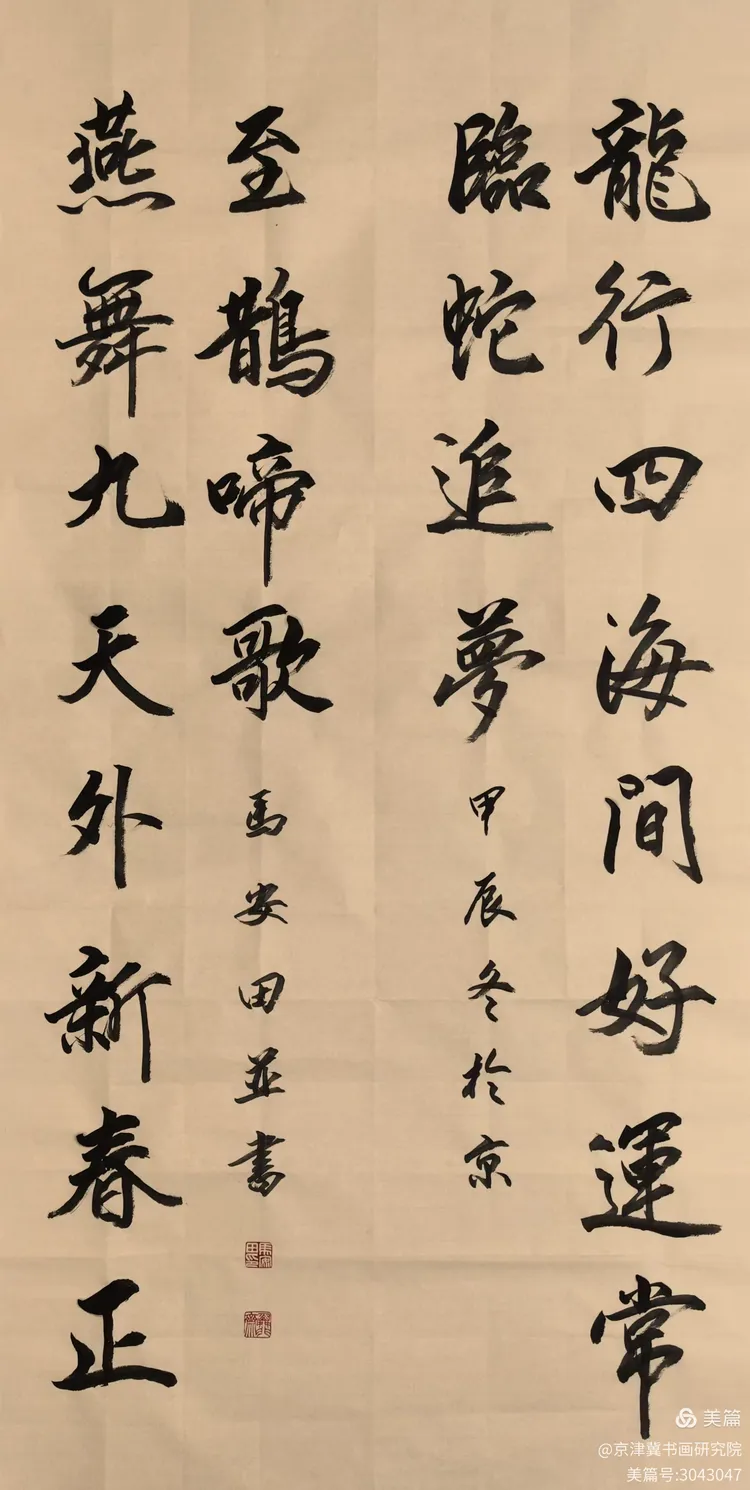 龍行四海間好運常
臨蛇追夢
甲辰冬於京
燕舞九天外新春正
至鵲啼歌
馬安田並書
美篇
@京津冀书画研究院
美篇号:3043047